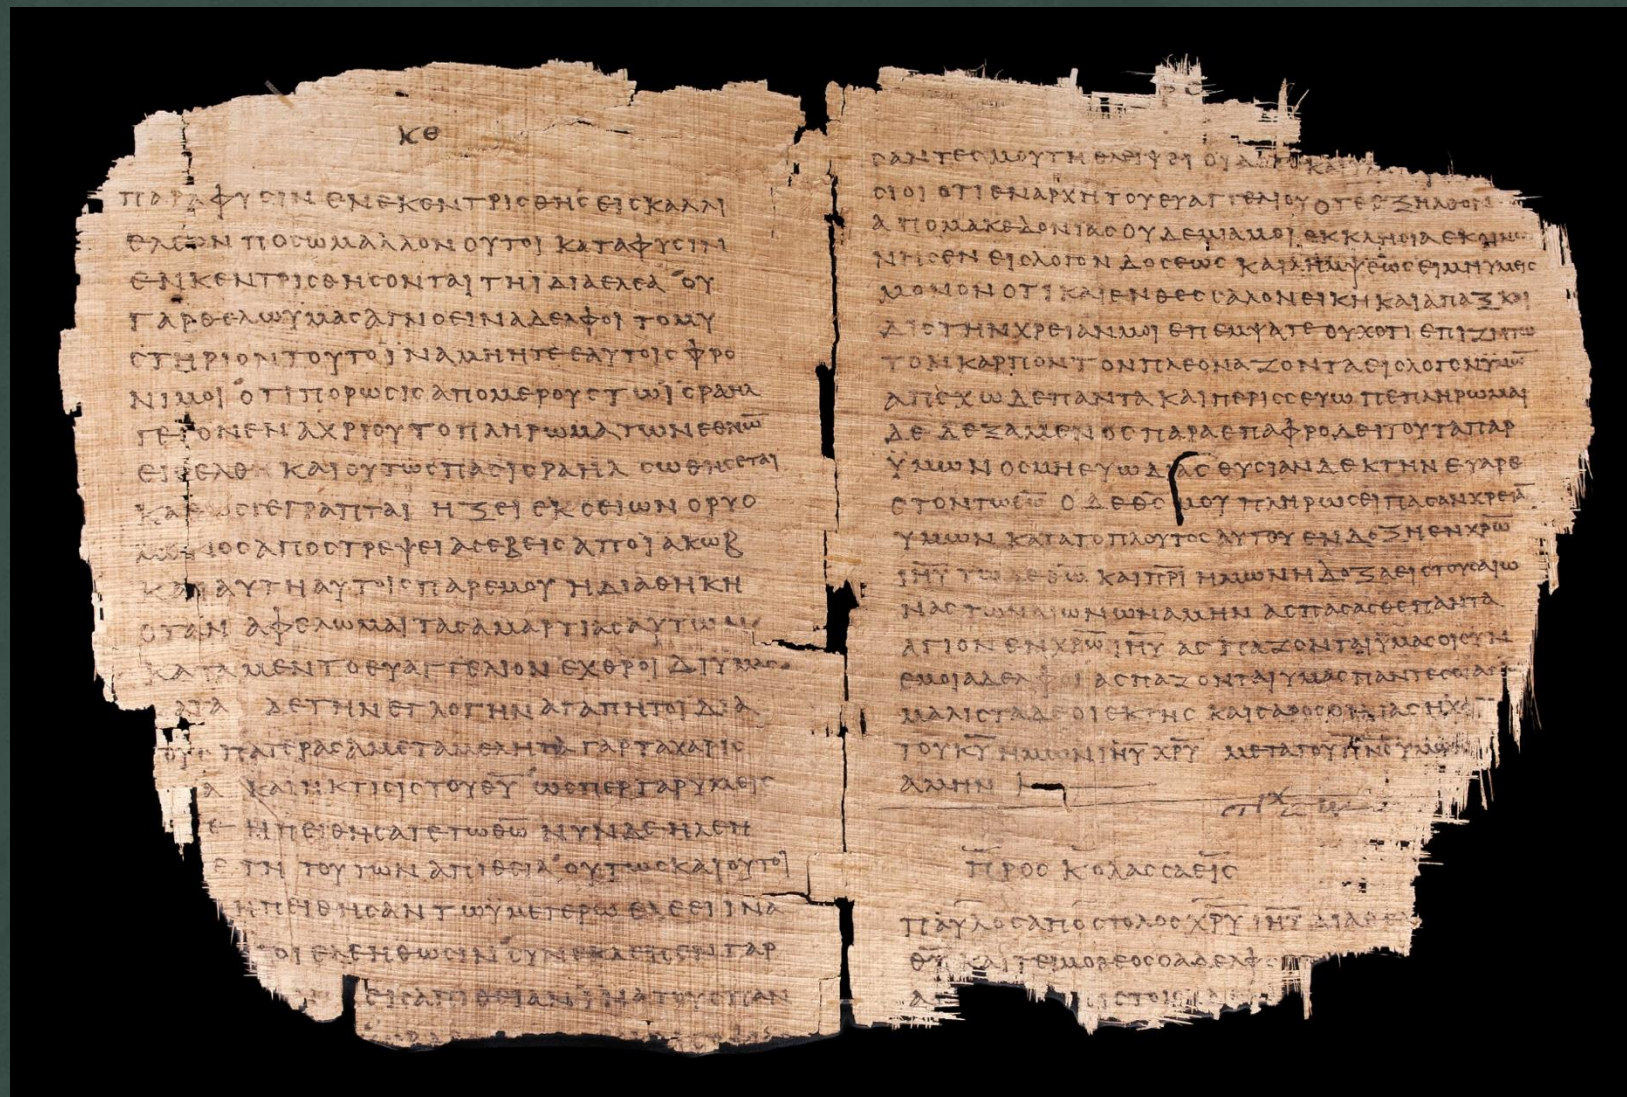 ΚΘ
ΠΑΡΑΦΥCΙΝ ΕΝΕΚΕΝΤΡΙCΘΗC ΕΙCΚΑΛΛΙ
ΠΟCΩΜΑΛΛΟΝ ΟΥΤΟΙ ΚΑΤΑΦΥCΙΝ
ΕΝΚΕΝΤΡΙCΘΗCΟΝΤΑΙ ΤΗΙΔΙΑΕΛΕΑ ΟΥ
ΓΑΡΘΕΛΩΥΜΑCΑΓΝΟΕΙΝΑΔΕΛΦΟΙ ΤΟΜΥ
CΤΗΡΙΟΝΤΟΥΤΟΙΝΑΜΗΗΤΕ ΕΑΥΤΟΙC ΦΡΟ
ΝΙΜΟΙ ΟΤΙΠΟΡΩCΙC ΑΠΟΜΕΡΟΥCΤΩΙCΡΑΗΛ
ΓΕΓΟΝΕΝ ΑΧΡΙΟΥΤΟΠΛΗΡΩΜΑΤΩΝΕΘΝΩ̅
ΚΑΙΟΥΤΩCΠΑCΙCΡΑΗΛ CΩΘΗCΕΤΑΙ
ΓΕΓΡΑΠΤΑΙ ΗΞΕΙ ΕΚ CΕΙΩΝ ΟΡΥΟ
ΑΠΟCΤΡΕΨΕΙ ΑCΕΒΕΙC ΑΠΟΙΑΚΩΒ
ΚΑΙ ΑΥΤΗΑΥΤΟΙCΠΑΡΕΜΟΥ ΗΔΙΑΘΗΚΗ
ΟΤΑΝ ΑΦΕΛΩΜΑΙ ΤΑCΑΜΑΡΤΙΑCΑΥΤΩΝ
ΚΑΤΑ ΜΕΝΤΟΕΥΑΓΓΕΛΙΟΝ ΕΧΘΡΟΙ ΔΙΥΜΑC
ΔΕΤΗΝΕΓΛΟΓΗΝ ΑΓΑΠΗΤΟΙ ΔΙΑ
ΠΑΤΕΡΑCΑΜΕΤΑΜΕΛΗΤΑ ΓΑΡΤΑΧΑΡΙC
ΚΑΙΗΚΤΙCΙCΤΟΥΘ̅Υ̅ ΩCΠΕΡΓΑΡΥΜΕΙC
ΝΥΝΔΕ ΗΛΕΗ
ΤΟΥΤΩΝ ΑΠΙΘΕΙΑ ΟΥΤΩCΚΑΙΟΥΤΟΙ
ΗΠΕΙΘΗCΑΝ ΤΩΥΜΕΤΕΡΩ ΕΛΕΕΙ ΙΝΑ
ΕΛΕΗΘΩCΙΝ CΥΝΕΚΛΕΙCΕΝΓΑΡ
ΕΙCΑΠΙΘΕΙΑΝ ΙΝΑΤΟΥCΠΑΝ
CΙΟΙ ΟΤΙΕΝΑΡΧΗΤΟΥΕΥΑΓΓΕΛΙΟΥΟΤΕ ΕΞΗΛΘΟΝ
ΑΠΟΜΑΚΕΔΟΝΙΑCΟΥΔΕΜΙΑΜΟΙ ΕΚΚΛΗCΙΑ
ΝΗCΕΝ ΕΙCΛΟΓΟΝ ΔΟCΕΩC ΚΑΙΛΗΜΨΕΩCΕΙΜΗΥΜΕΙC
ΜΟΝΟΝ ΟΤΙΚΑΙΕΝΘΕCCΑΛΟΝΕΙΚΗ ΚΑΙΑΠΑΞ ΚΑΙ
ΔΙCΤΗΝΧΡΕΙΑΝΜΟΙ ΕΠΕΜΨΑΤΕ ΟΥΧΟΤΙ ΕΠΙΖΗΤΩ
ΤΟΝΚΑΡΠΟΝΤΟΝΠΛΕΟΝΑΖΟΝΤΑΕΙCΛΟΓΟΝΥΜΩ̅
ΑΠΕΧΩΔΕΠΑΝΤΑ ΚΑΙΠΕΡΙCCΕΥΩ ΠΕΠΛΗΡΩΜΑΙ
ΔΕ ΔΕΞΑΜΕΝΟCΠΑΡΑΕΠΑΦΡΟΔΕΙΤΟΥΤΑΠΑΡ
ΥΜΩΝ ΟCΜΗΕΥΩΔΙΑC ΘΥCΙΑΝΔΕΚΤΗΝ ΕΥΑΡΕ
CΤΟΝΤΩΘ̅Ω̅ Ο ΔΕΘ̅C̅ ΜΟΥ ΠΛΗΡΩCΕΙΠΑCΑΝΧΡΕΙΑ̅
ΥΜΩΝ ΚΑΤΑΤΟΠΛΟΥΤΟCΑΥΤΟΥΕΝΔΟΞΗΕΝΧ̅Ρ̅Ω̅
Ι̅Η̅Υ̅ ΤΩΔΕΘ̅Ω̅ ΚΑΙΠ̅Ρ̅Ι̅ ΗΜΩΝΗΔΟΞΑΕΙCΤΟΥCΑΙΩ
ΝΑCΤΩΝΑΙΩΝΩΝΑΜΗΝ ΑCΠΑCΑCΘΕΠΑΝΤΑ
ΑΓΙΟΝ ΕΝΧ̅Ρ̅Ω̅ Ι̅Η̅Υ̅ ΑCΠΑΖΟΝΤΑΙΥΜΑCΟΙCΥΝ
ΕΜΟΙΑΔΕΛΦΟΙ ΑCΠΑΖΟΝΤΑΙΥΜΑCΠΑΝΤΕC
ΜΑΛΙCΤΑΔΕΟΙΕΚΤΗC ΚΑΙCΑΡΟC
ΤΟΥΚ̅Υ̅ ΗΜΩΝΙ̅Η̅Υ̅ Χ̅Ρ̅Υ̅ ΜΕΤΑΤΟΥΠ̅Ν̅C̅
ΑΜΗΝ
ΠΡΟC ΚΟΛΑCCΑΕΙC
ΠΑΥΛΟCΑΠΟCΤΟΛΟCΧ̅Ρ̅Υ̅ Ι̅Η̅Υ̅ ΔΙΑΘΕ
Θ̅Υ̅ ΚΑΙΤΕΙΜΟΘΕΟCΟΑΔΕΛΦ